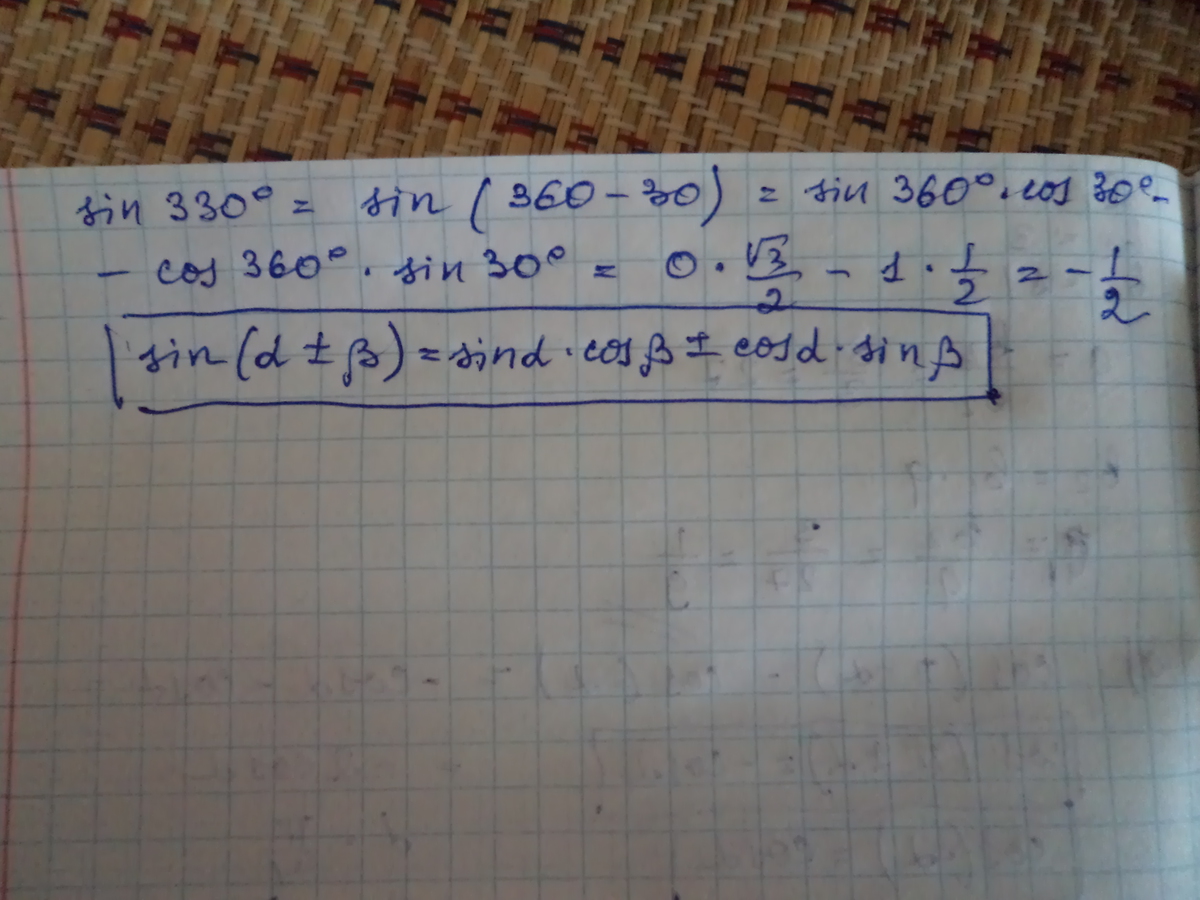 sin 330° = sin (360 - 30) = sin 360° · cos 30° -
- cos 360° · sin 30° = 0 · √3/2 - 1 · 1/2 = - 1/2
sin(α ± β) = sinα · cosβ ± cosα · sinβ